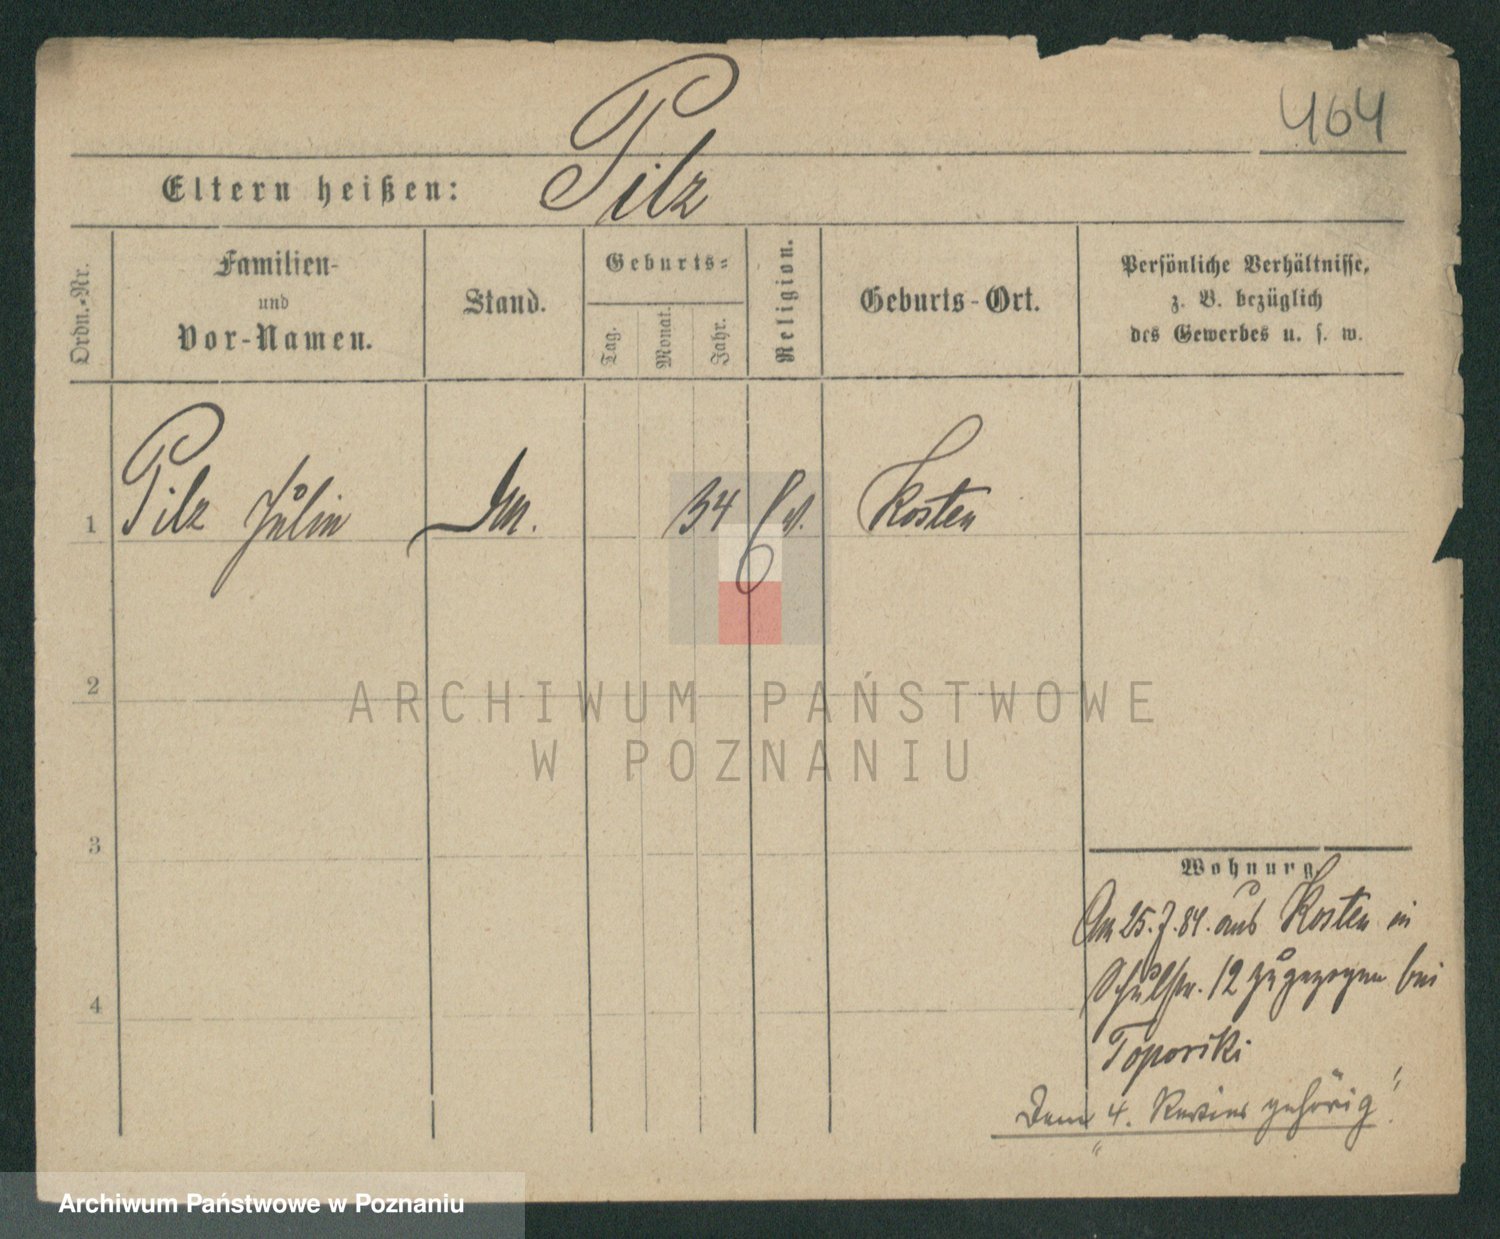 464
Pilz
Eltern heißen:
Ordn.-Nr.
Familien-
und
Vor-Namen.
Stand.
Geburts-
Tag.
Monat.
Jahr.
Religion.
Geburts-Ort.
Persönliche Verhältnisse,
z. B. bezüglich
des Gewerbes u. s. w.
1 Pilz 34 Ev. Kosten
2
3
4
ARCHIWUM PAŃSTWOWE
W POZNANIU
Wohnung
Am 25. 7. 84. aus Kosten in
Schulstr. 12 zugezogen bei
Toporski
Dem 4. Revier gehörig!
Archiwum Państwowe w Poznaniu